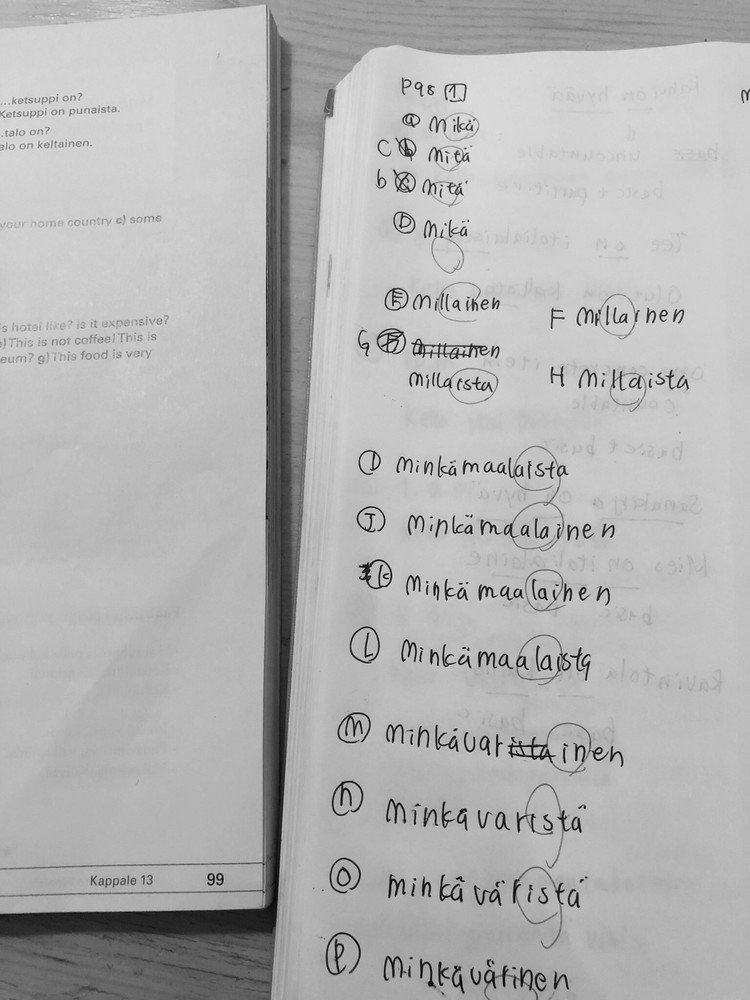 ...ketsuppi on?
Ketsuppi on punaista.
..talo on?
alo on keltainen.
your home country c) some
s hotel like? is it expensive?
) This is not coffee! This is
eum? g) This food is very
Kappale 13 99
P98 1
a mikä
C b mitä
b c mitä
D mikä
E millainen
F millainen
G millainen
millaista
H millaista
I minkämaalaista
J minkämaalainen
K minkämaalainen
L minkämaalaista
M minkävaristainen
N minkävaristä
O minkäväristä
P minkävärinen